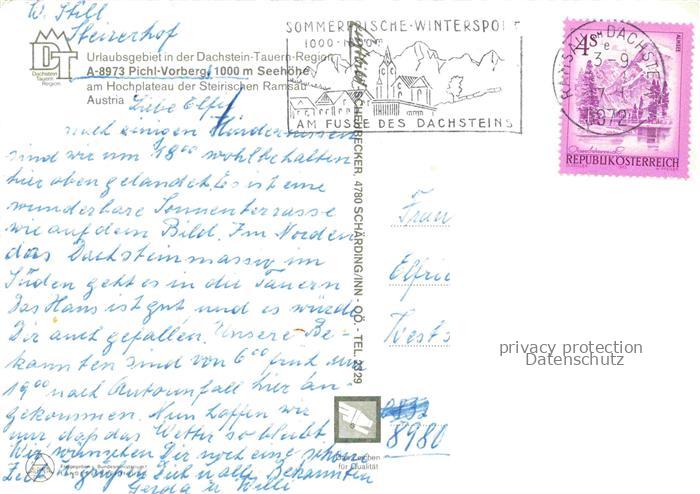 W. Still
Steirerhof
DT
Dachstein
Tauern
Region
Urlaubsgebiet in der Dachstein-Tauern-Region
A-8973 Pichl-Vorberg, 1000 m Seehöhe
am Hochplateau der Steirischen Ramsau
Austria
Liebe Elfi!
nach einigen Hindernissen
sind wir um 1/2 18 00 wohlbehalten
hier oben gelandet. Es ist eine
wunderbare Sonnenterrasse
wie auf dem Bild. Im Norden
das Dachsteinmassiv im
Süden geht es in die Tauern
Das Haus ist gut und es würde
Dir auch gefallen. Unsere Be-
kannten sind von 6 00 früh um
19 00 nach Autounfall hier an-
gekommen. Nun hoffen wir
nur, daß das Wetter so bleibt.
Wir wünschen Dir noch eine schöne
Zeit u. grüßen Dich u. alle Bekannten
Gerda u. Willi
SCHEURECKER, 4780 SCHÄRDING/INN - OÖ. - TEL. 2329
SOMMERFRISCHE-WINTERSPORT
AM FUSSE DES DACHSTEINS
RAMSAU DACHSTEIN
4S
ALMSEE
REPUBLIK ÖSTERREICH
Frau
Elfrie
Wests
8980
für Qualität
privacy protection
Datenschutz